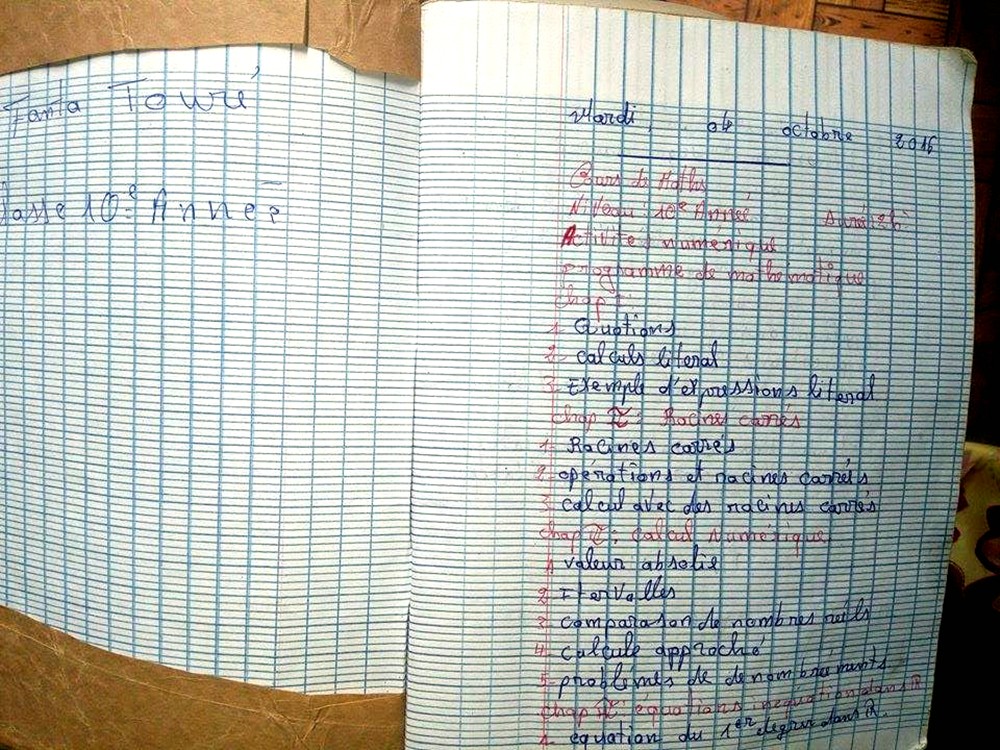 Fanta Touré
classe 10e Année
Mardi, 04 octobre 2016
Cours de Maths
Niveau: 10e Année Durée: 2h
Activites numérique
programme de mathematique
Chap I:
1- Quotions
2- calculs literal
3- Exemple d'expressions literal
Chap II: Racines carrés
1- Racines carrés
2- opérations et racines carrés
3- calcul avec des racines carrés
Chap III: calcul Numérique
1- valeur absolie
2- Itervalles
3- comparason de nombres réels
4- calcule approché
5- problèmes de denombrements
Chap IV: équations inequation dans R
1- équation du 1er degré dans R.